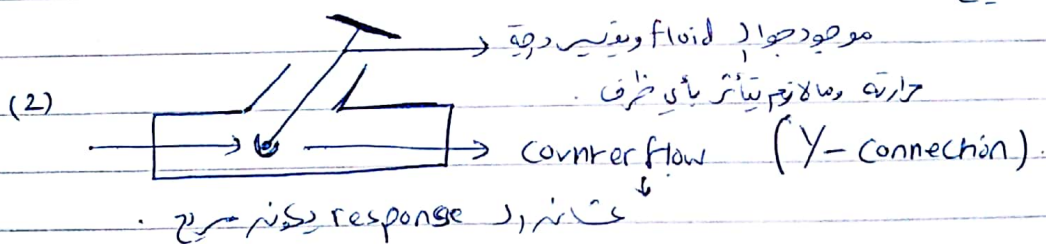 موجود جوا ال fluid وبقيس درجة
حرارته وما لازم يتأثر بأي ظرف .
(2)
counter flow (Y-connection).
عشانه ال response يكونه سريع .